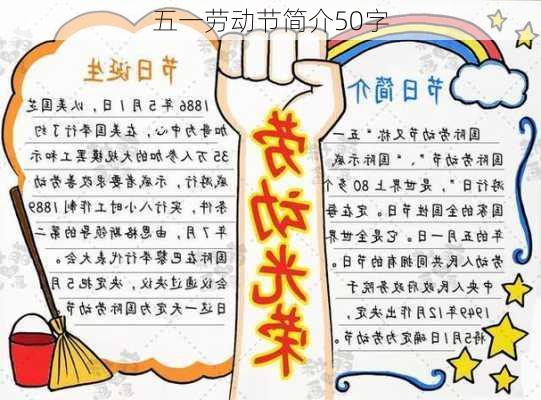 五一劳动节简介50字
节日诞生
1886年5月1日，以美国芝
加哥为中心，在美国举行了约
35万人参加的大规模罢工和示
威游行，示威者要求改善劳动
条件，实行八小时工作制。1889
年7月，由恩格斯领导的第二
国际在巴黎举行代表大会。
会议通过决议，决定把5月
1日这一天定为国际劳动节。
劳动光荣
节日简介
国际劳动节又称“五一
国际劳动节”、“国际示威
游行日”，是世界上80多个
国家的全国性节日。定在每
年的五月一日。它是全世界
劳动人民共同拥有的节日。
中央人民政府政务院于
1949年12月作出决定，
将5月1日确定为劳动节。